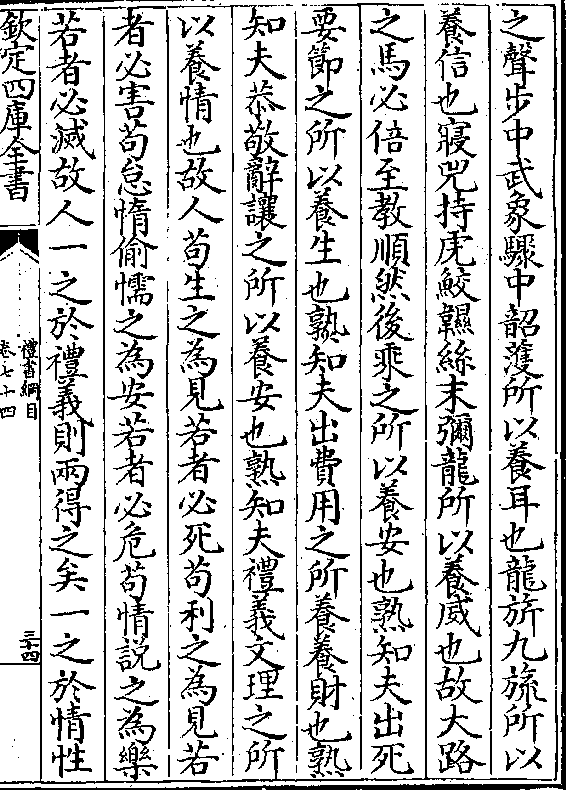 之聲步中武象驟中韶濩所以養耳也龍旂九旒所以
養信也寢兕持虎鮫韅絲末彌龍所以養威也故大路
之馬必倍至教順然後乘之所以養安也熟知夫出死
要節之所以養生也熟知夫出費用之所養養財也熟
知夫恭敬辭讓之所以養安也熟知夫禮義文理之所
以養情也故人苟生之為見若者必死苟利之為見若
者必害苟怠惰偷懦之為安若者必危苟情説之為樂
若者必滅故人一之於禮義則兩得之矣一之於情性
欽定四庫全書
禮書綱目
卷七十四
三十四